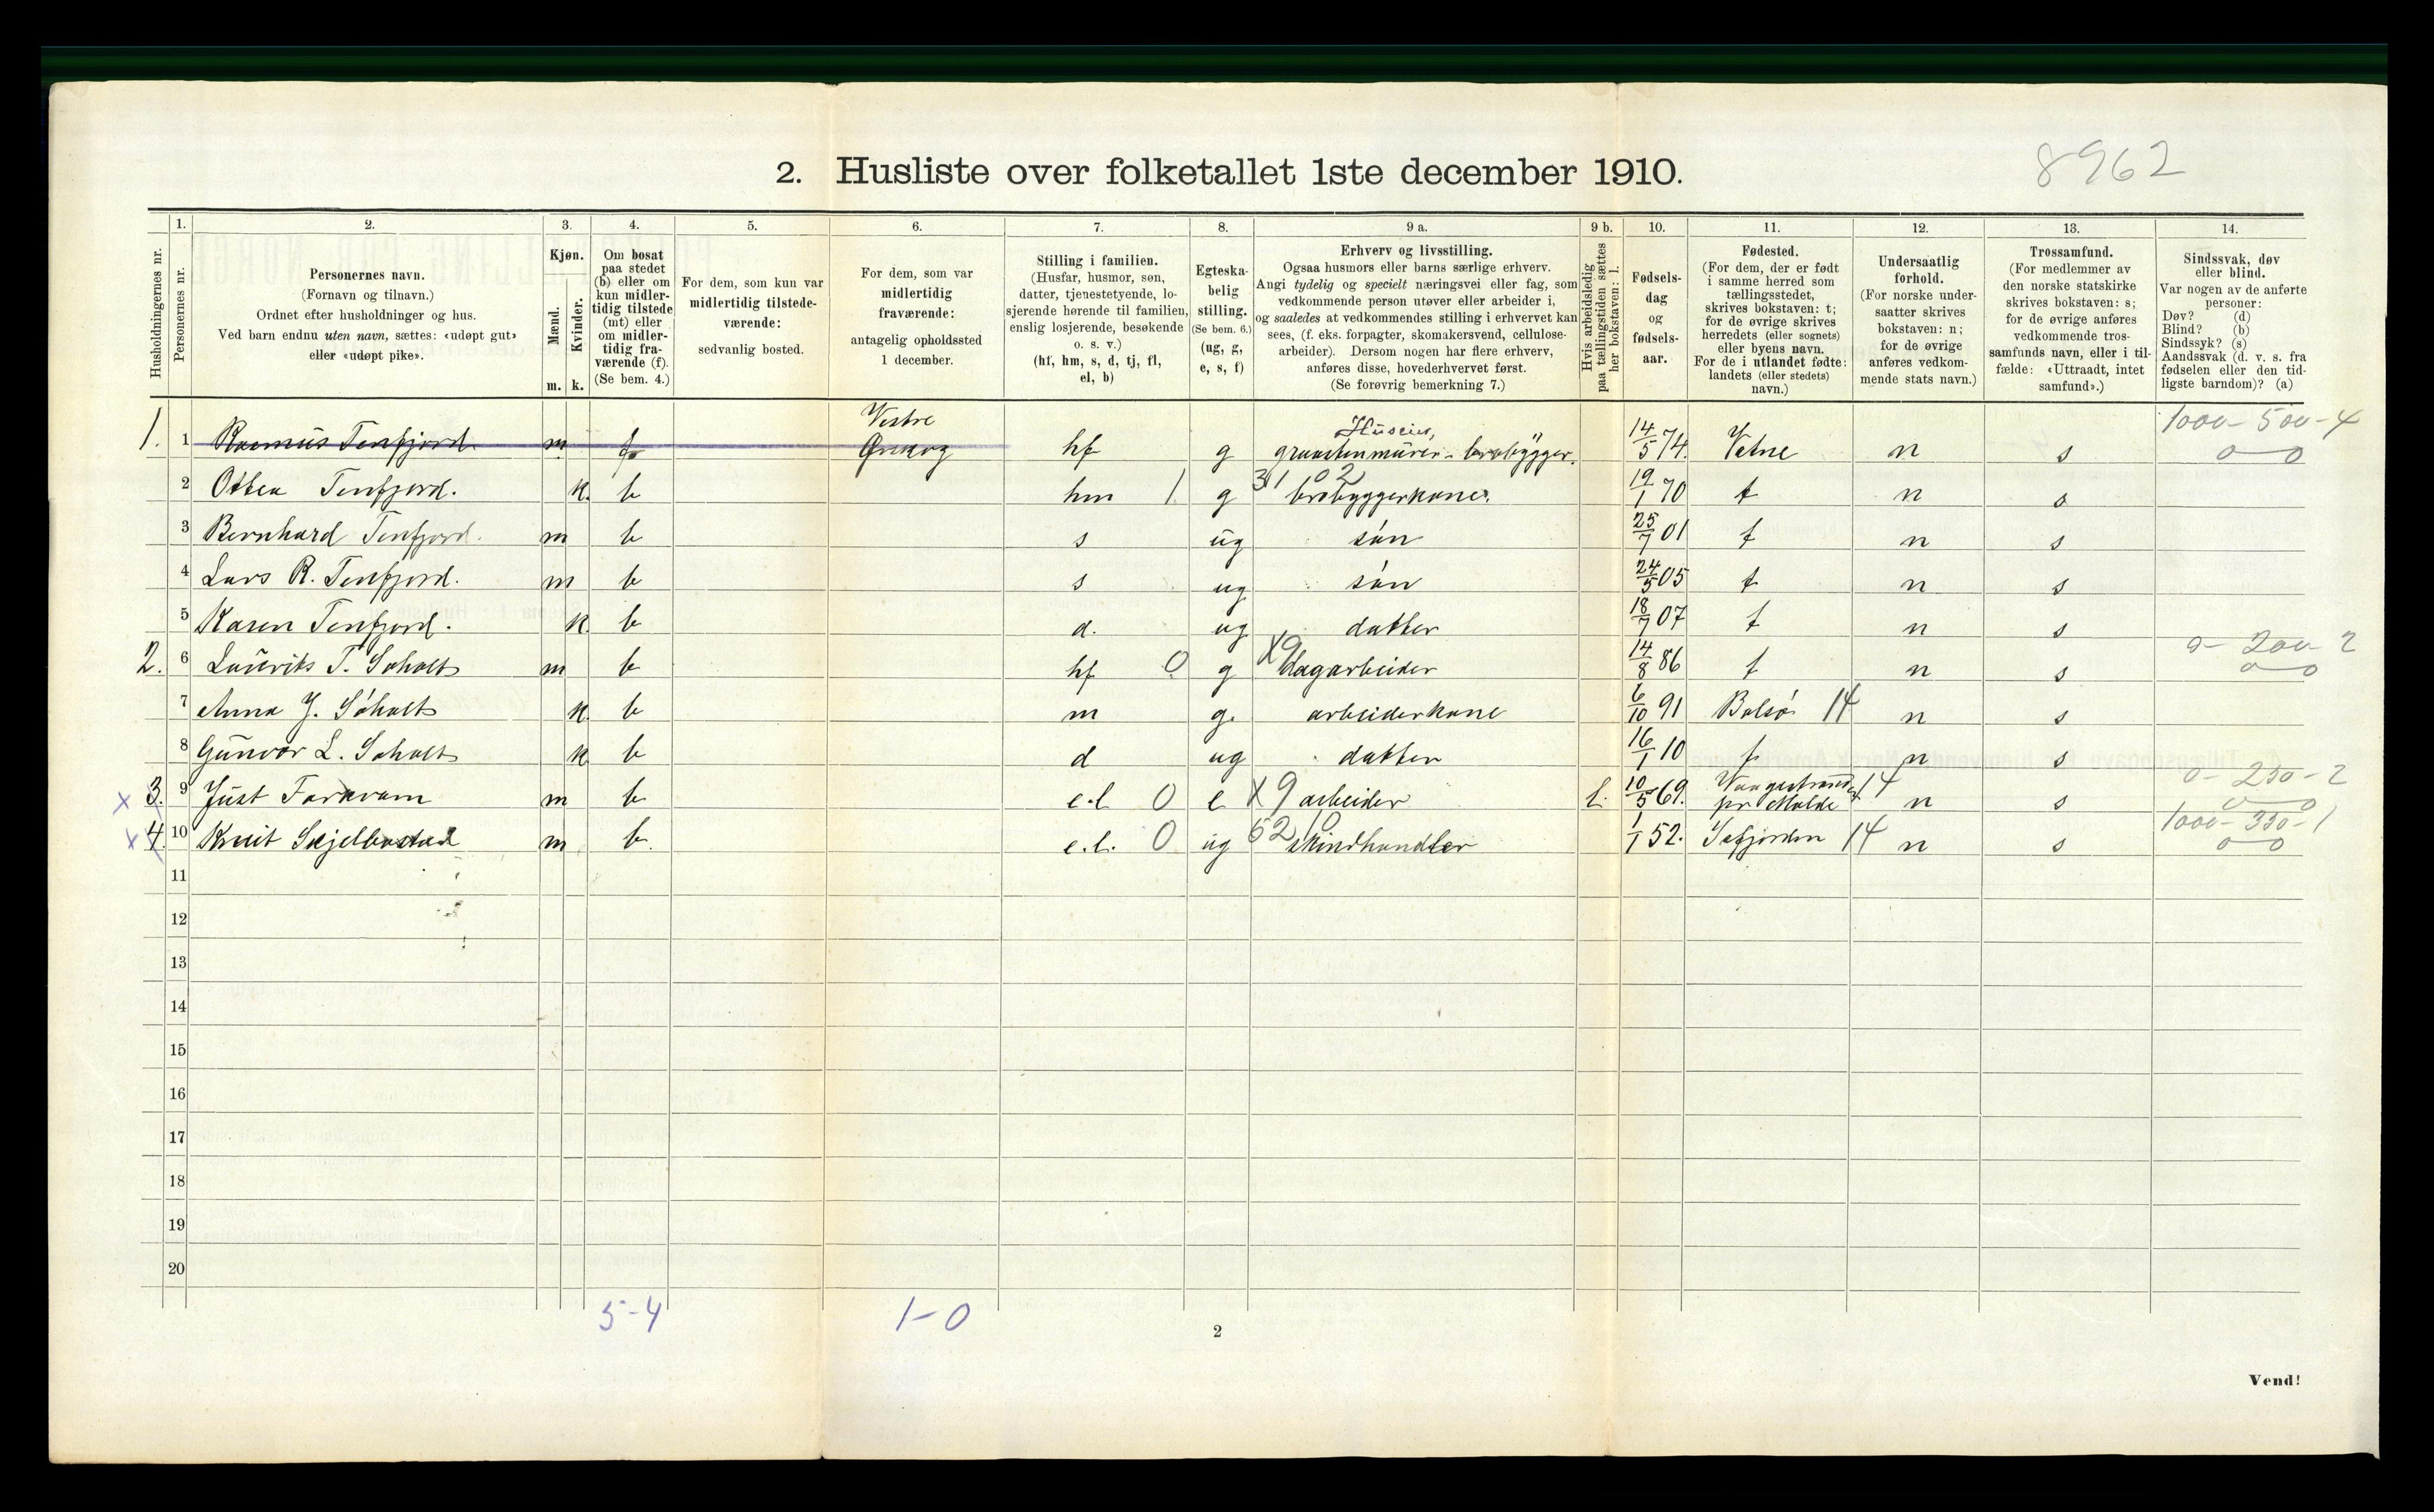 8962
2. Husliste over folketallet 1ste december 1910.
Husholdningernes nr.
1. Personernes nr.
2. Personernes navn.
(Fornavn og tilnavn.)
Ordnet efter husholdninger og hus.
Ved barn endnu uten navn, sættes: «udøpt gut»
eller «udøpt pike».
3. Kjøn.
Mænd. m.
Kvinder. k.
4. Om bosat
paa stedet
(b) eller om
kun midler-
tidig tilstede
(mt) eller
om midler-
tidig fra-
værende (f).
(Se bem. 4.)
5. For dem, som kun var
midlertidig tilstede-
værende:
sedvanlig bosted.
6. For dem, som var
midlertidig
fraværende:
antagelig opholdssted
1 december.
7. Stilling i familien.
(Husfar, husmor, søn,
datter, tjenestetyende, lo-
sjerende hørende til familien,
enslig losjerende, besøkende
o. s. v.)
(hf, hm, s, d, tj, fl,
el, b)
8. Egteska-
belig
stilling.
(Se bem. 6.)
(ug, g,
e, s, f)
9 a. Erhverv og livsstilling.
Ogsaa husmors eller barns særlige erhverv.
Angi tydelig og specielt næringsvei eller fag, som
vedkommende person utøver eller arbeider i,
og saaledes at vedkommendes stilling i erhvervet kan
sees, (f. eks. forpagter, skomakersvend, cellulose-
arbeider). Dersom nogen har flere erhverv,
anføres disse, hovederhvervet først.
(Se forøvrig bemerkning 7.)
9 b. Hvis arbeidsledig
paa tællingstiden sættes
her bokstaven: l.
10. Fødsels-
dag
og
fødsels-
aar.
11. Fødested.
(For dem, der er født
i samme herred som
tællingsstedet,
skrives bokstaven: t;
for de øvrige skrives
herredets (eller sognets)
eller byens navn.
For de i utlandet fødte:
landets (eller stedets)
navn.)
12. Undersaatlig
forhold.
(For norske under-
saatter skrives
bokstaven: n;
for de øvrige
anføres vedkom-
mende stats navn.)
13. Trossamfund.
(For medlemmer av
den norske statskirke
skrives bokstaven: s;
for de øvrige anføres
vedkommende tros-
samfunds navn, eller i til-
fælde: «Uttraadt, intet
samfund».)
14. Sindssvak, døv
eller blind.
Var nogen av de anførte
personer:
Døv? (d)
Blind? (b)
Sindssyk? (s)
Aandssvak (d. v. s. fra
fødselen eller den tid-
ligste barndom)? (a)
1. 1 Rasmus Tenfjord m f Vestre Ørskog hf g Huseier, graastenmürer - brobygger. 14/5 74. Vatne n s 1000 - 500 - 4 0 - 0
2 Othea Tenfjord. k. b hm 1 g 31 02 brobyggerkone. 19/1 70 t n s
3 Bernhard Tenfjord. m b s ug søn 25/7 01 t n s
4 Lars R. Tenfjord. m b s ug søn 24/5 05 t n s
5 Karen Tenfjord. k. b d. ug datter 18/7 07 t n s
2. 6 Lauritz T. Soholt m b hf 0 g X9 dagarbeider 14/8 86 t n s 0 - 200 - 2 0 - 0
7 Anna J. Soholt k. b m g. arbeiderkone 6/10 91 Bolsø 14 n s
8 Gunvor L. Soholt k b d ug datter 16/1 10 t n s
x 3. 9 Just Farkvam m b e.l. 0 e X9 arbeider l. 10/5 69. pr Molde 14 n s 0 - 250 - 2 0 - 0
x 4. 10 Knut Skjelbostad m b. e.l. 0 ug 52 10 skindhandler 1/1 52. 14 n s 1000 - 350 - 1 0 - 0
11
12
13
14
15
16
17
18
19
20
5-4 1-0
2
Vend!